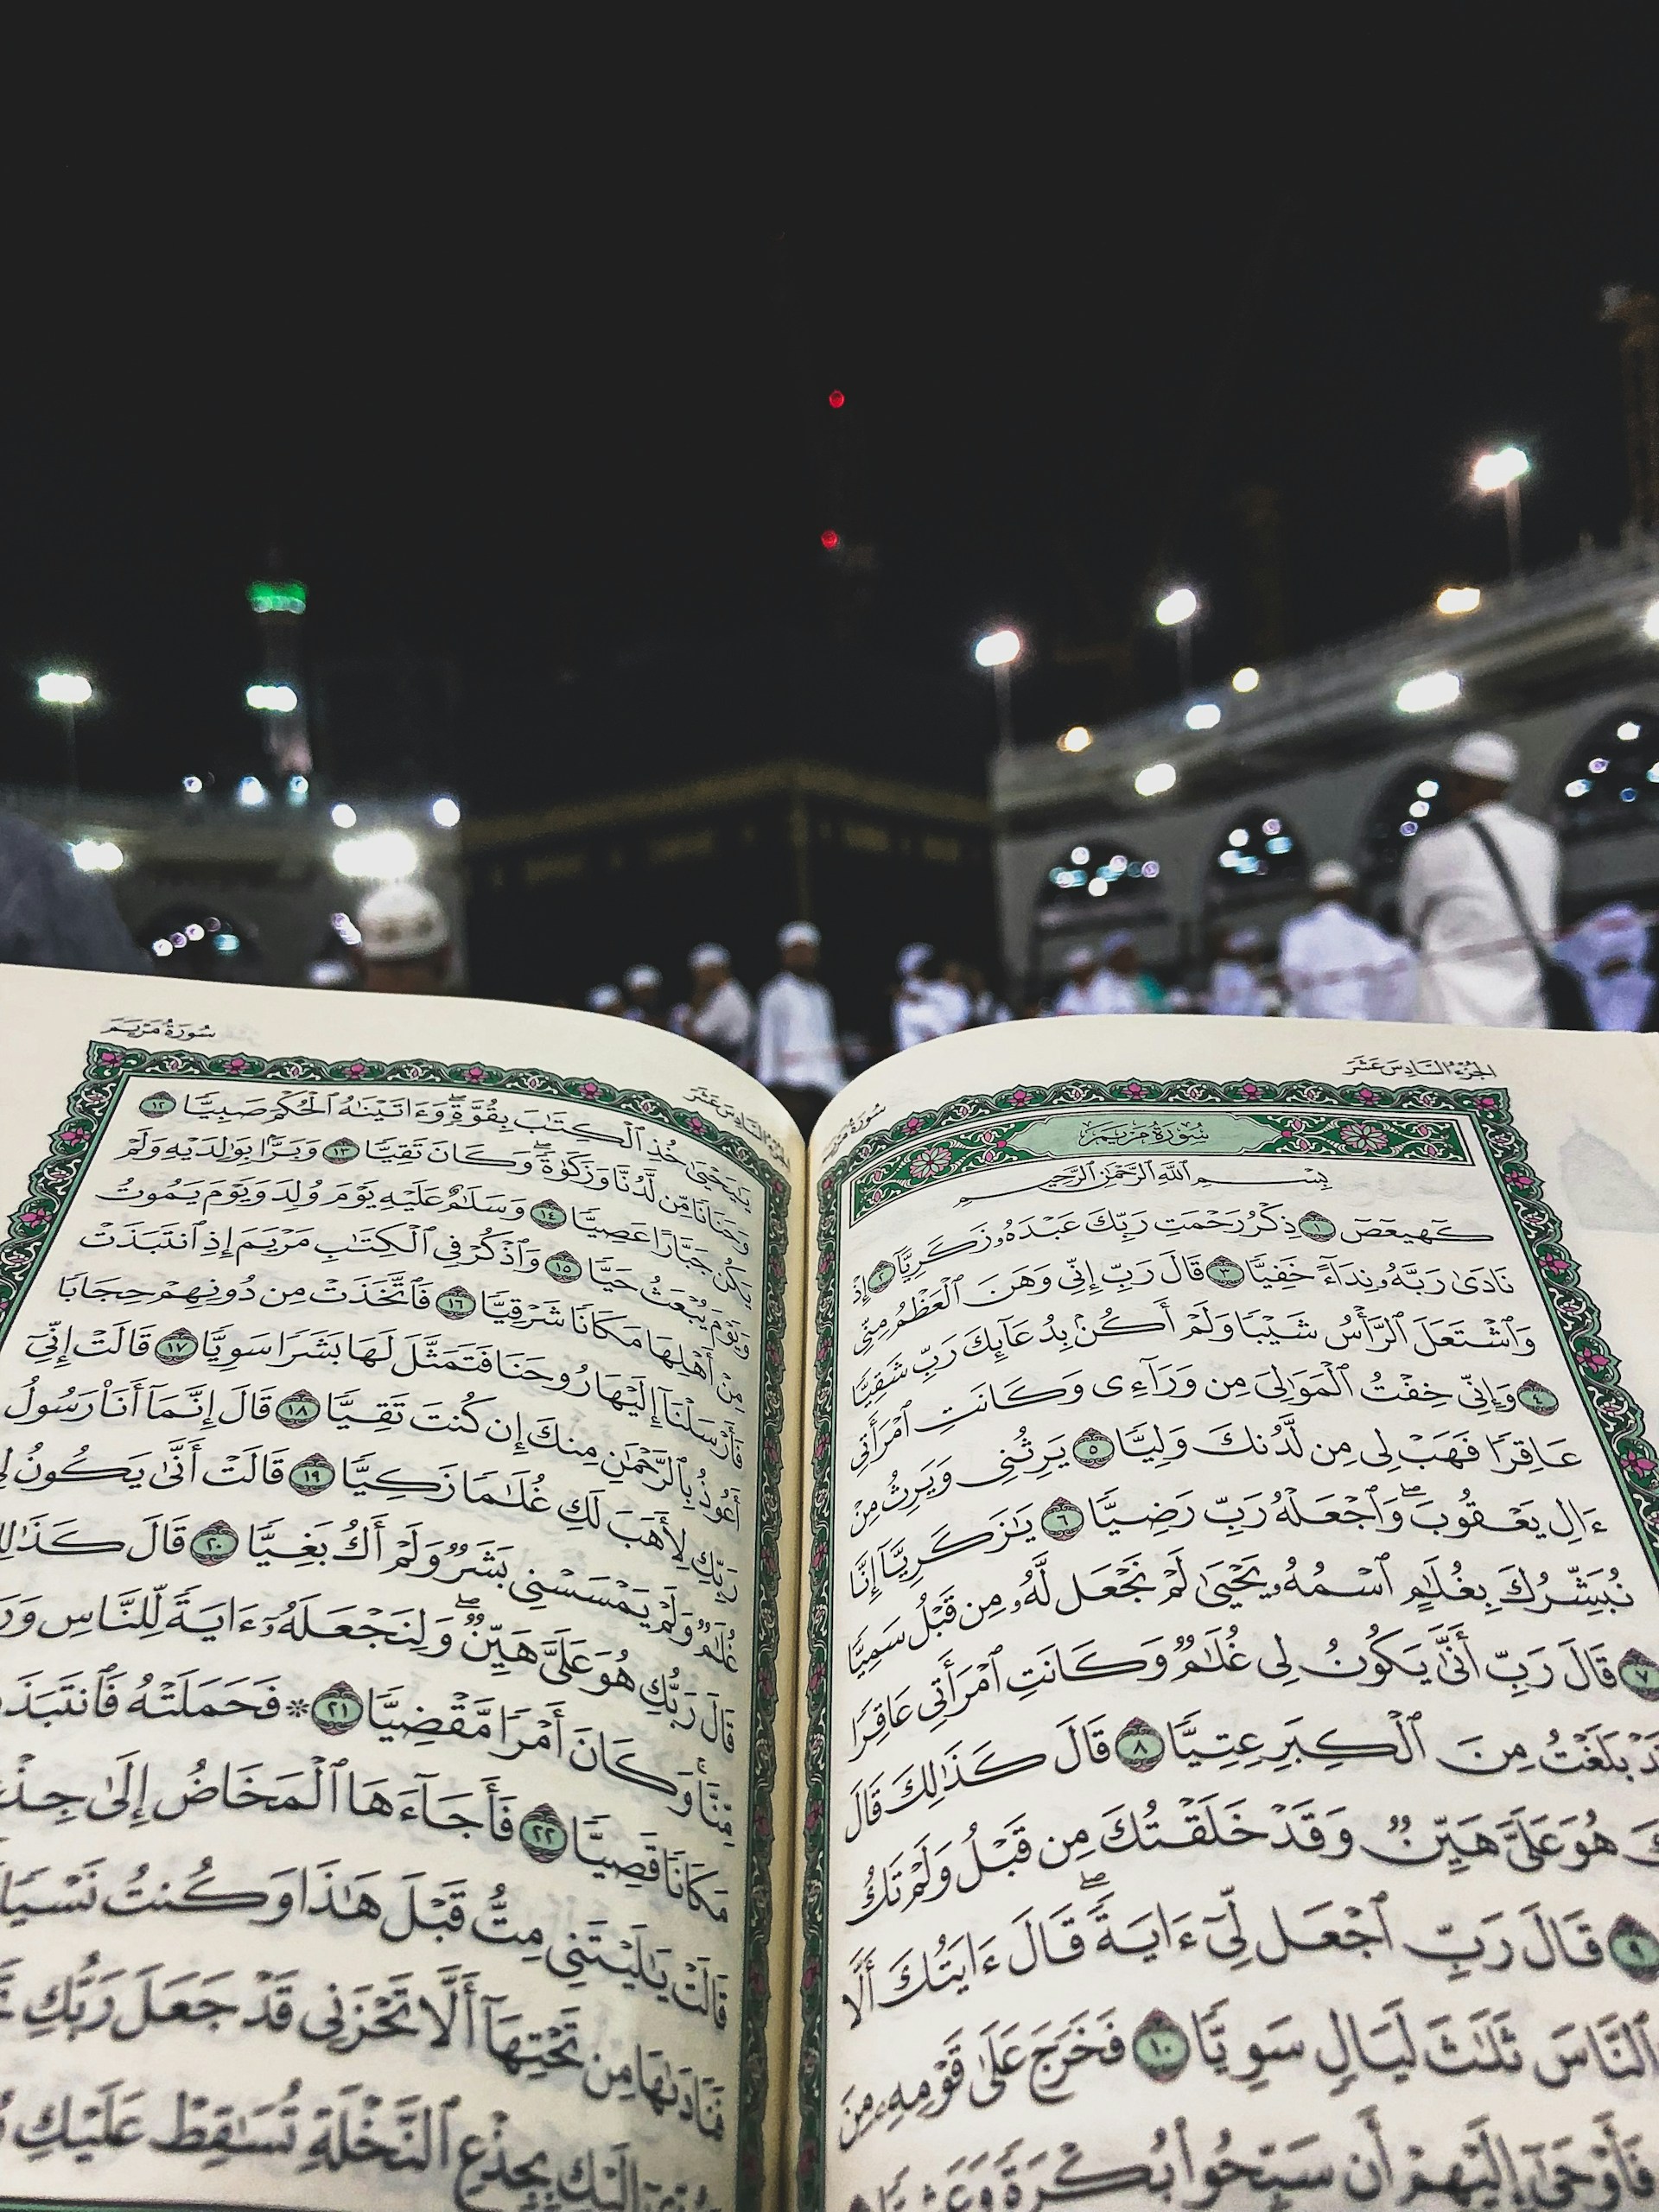 الجزء السادس عشر
سورة مريم
سُورَةُ مَرْيَمَ
بِسْمِ ٱللَّهِ ٱلرَّحْمَٰنِ ٱلرَّحِيمِ
كٓهيعٓصٓ ١ ذِكْرُ رَحْمَتِ رَبِّكَ عَبْدَهُۥ زَكَرِيَّآ ٢ إِذْ
نَادَىٰ رَبَّهُۥ نِدَآءً خَفِيًّا ٣ قَالَ رَبِّ إِنِّى وَهَنَ ٱلْعَظْمُ مِنِّى
وَٱشْتَعَلَ ٱلرَّأْسُ شَيْبًا وَلَمْ أَكُنۢ بِدُعَآئِكَ رَبِّ شَقِيًّا
٤ وَإِنِّى خِفْتُ ٱلْمَوَٰلِىَ مِن وَرَآءِى وَكَانَتِ ٱمْرَأَتِى
عَاقِرًا فَهَبْ لِى مِن لَّدُنكَ وَلِيًّا ٥ يَرِثُنِى وَيَرِثُ مِنْ
ءَالِ يَعْقُوبَ ۖ وَٱجْعَلْهُ رَبِّ رَضِيًّا ٦ يَٰزَكَرِيَّآ إِنَّا
نُبَشِّرُكَ بِغُلَٰمٍ ٱسْمُهُۥ يَحْيَىٰ لَمْ نَجْعَل لَّهُۥ مِن قَبْلُ سَمِيًّا
٧ قَالَ رَبِّ أَنَّىٰ يَكُونُ لِى غُلَٰمٌ وَكَانَتِ ٱمْرَأَتِى عَاقِرًا
بَلَغْتُ مِنَ ٱلْكِبَرِ عِتِيًّا ٨ قَالَ كَذَٰلِكَ قَالَ
هُوَ عَلَىَّ هَيِّنٌ وَقَدْ خَلَقْتُكَ مِن قَبْلُ وَلَمْ تَكُ
٩ قَالَ رَبِّ ٱجْعَل لِّىٓ ءَايَةً ۚ قَالَ ءَايَتُكَ أَلَّا
ٱلنَّاسَ ثَلَٰثَ لَيَالٍ سَوِيًّا ١٠ فَخَرَجَ عَلَىٰ قَوْمِهِۦ مِنَ
فَأَوْحَىٰٓ إِلَيْهِمْ أَن سَبِّحُوا۟ بُكْرَةً وَعَشِيًّا
الجزء السادس عشر
سورة مريم
يَٰيَحْيَىٰ خُذِ ٱلْكِتَٰبَ بِقُوَّةٍ ۖ وَءَاتَيْنَٰهُ ٱلْحُكْمَ صَبِيًّا ١٢
وَحَنَانًا مِّن لَّدُنَّا وَزَكَوٰةً ۖ وَكَانَ تَقِيًّا ١٣ وَبَرًّۢا بِوَٰلِدَيْهِ وَلَمْ
يَكُن جَبَّارًا عَصِيًّا ١٤ وَسَلَٰمٌ عَلَيْهِ يَوْمَ وُلِدَ وَيَوْمَ يَمُوتُ
وَيَوْمَ يُبْعَثُ حَيًّا ١٥ وَٱذْكُرْ فِى ٱلْكِتَٰبِ مَرْيَمَ إِذِ ٱنتَبَذَتْ
مِنْ أَهْلِهَا مَكَانًا شَرْقِيًّا ١٦ فَٱتَّخَذَتْ مِن دُونِهِمْ حِجَابًا
فَأَرْسَلْنَآ إِلَيْهَا رُوحَنَا فَتَمَثَّلَ لَهَا بَشَرًا سَوِيًّا ١٧ قَالَتْ إِنِّىٓ
أَعُوذُ بِٱلرَّحْمَٰنِ مِنكَ إِن كُنتَ تَقِيًّا ١٨ قَالَ إِنَّمَآ أَنَا۠ رَسُولُ
رَبِّكِ لِأَهَبَ لَكِ غُلَٰمًا زَكِيًّا ١٩ قَالَتْ أَنَّىٰ يَكُونُ لِى
غُلَٰمٌ وَلَمْ يَمْسَسْنِى بَشَرٌ وَلَمْ أَكُ بَغِيًّا ٢٠ قَالَ كَذَٰلِكِ
قَالَ رَبُّكِ هُوَ عَلَىَّ هَيِّنٌ ۖ وَلِنَجْعَلَهُۥٓ ءَايَةً لِّلنَّاسِ
مِّنَّا ۚ وَكَانَ أَمْرًا مَّقْضِيًّا ٢١ ۞ فَحَمَلَتْهُ فَٱنتَبَذَتْ
مَكَانًا قَصِيًّا ٢٢ فَأَجَآءَهَا ٱلْمَخَاضُ إِلَىٰ جِذْعِ
قَالَتْ يَٰلَيْتَنِى مِتُّ قَبْلَ هَٰذَا وَكُنتُ نَسْيًا
فَنَادَىٰهَا مِن تَحْتِهَآ أَلَّا تَحْزَنِى قَدْ جَعَلَ رَبُّكِ
إِلَيْكِ بِجِذْعِ ٱلنَّخْلَةِ تُسَٰقِطْ عَلَيْكِ